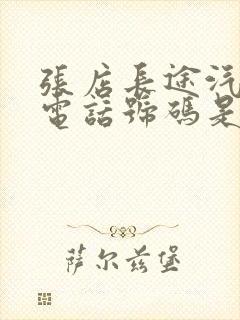 張店長途汽
電話號碼是
萨尔兹堡